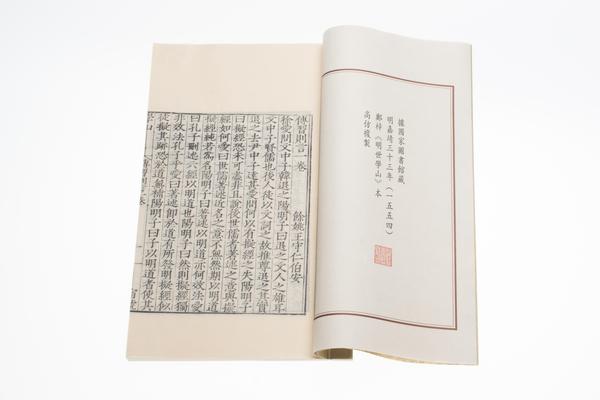 據國家圖書館藏
明嘉靖三十三年（一五五四）
鄭梓《明世學山》本
高仿複製
傳習則言一卷 餘姚王守仁伯安
徐愛問文中子韓退之陽明子曰退之文人之雄耳
文中子賢儒也後人徒以文詞之故推尊退之其實
退之去文中子遠甚愛問何以有擬經之失陽明子
曰擬經恐未可盡非且說後世儒者著述之意與擬
經如何愛曰世儒著述近名之意不無然期以明道
擬經純若為名陽明子曰著述以明道亦何效法愛
曰孔子刪述六經以明道也陽明子曰然則擬經獨
非效法孔子乎愛曰著述即於道有所發明擬經似
徒擬其跡恐於道無補陽明子曰子以明道者使其